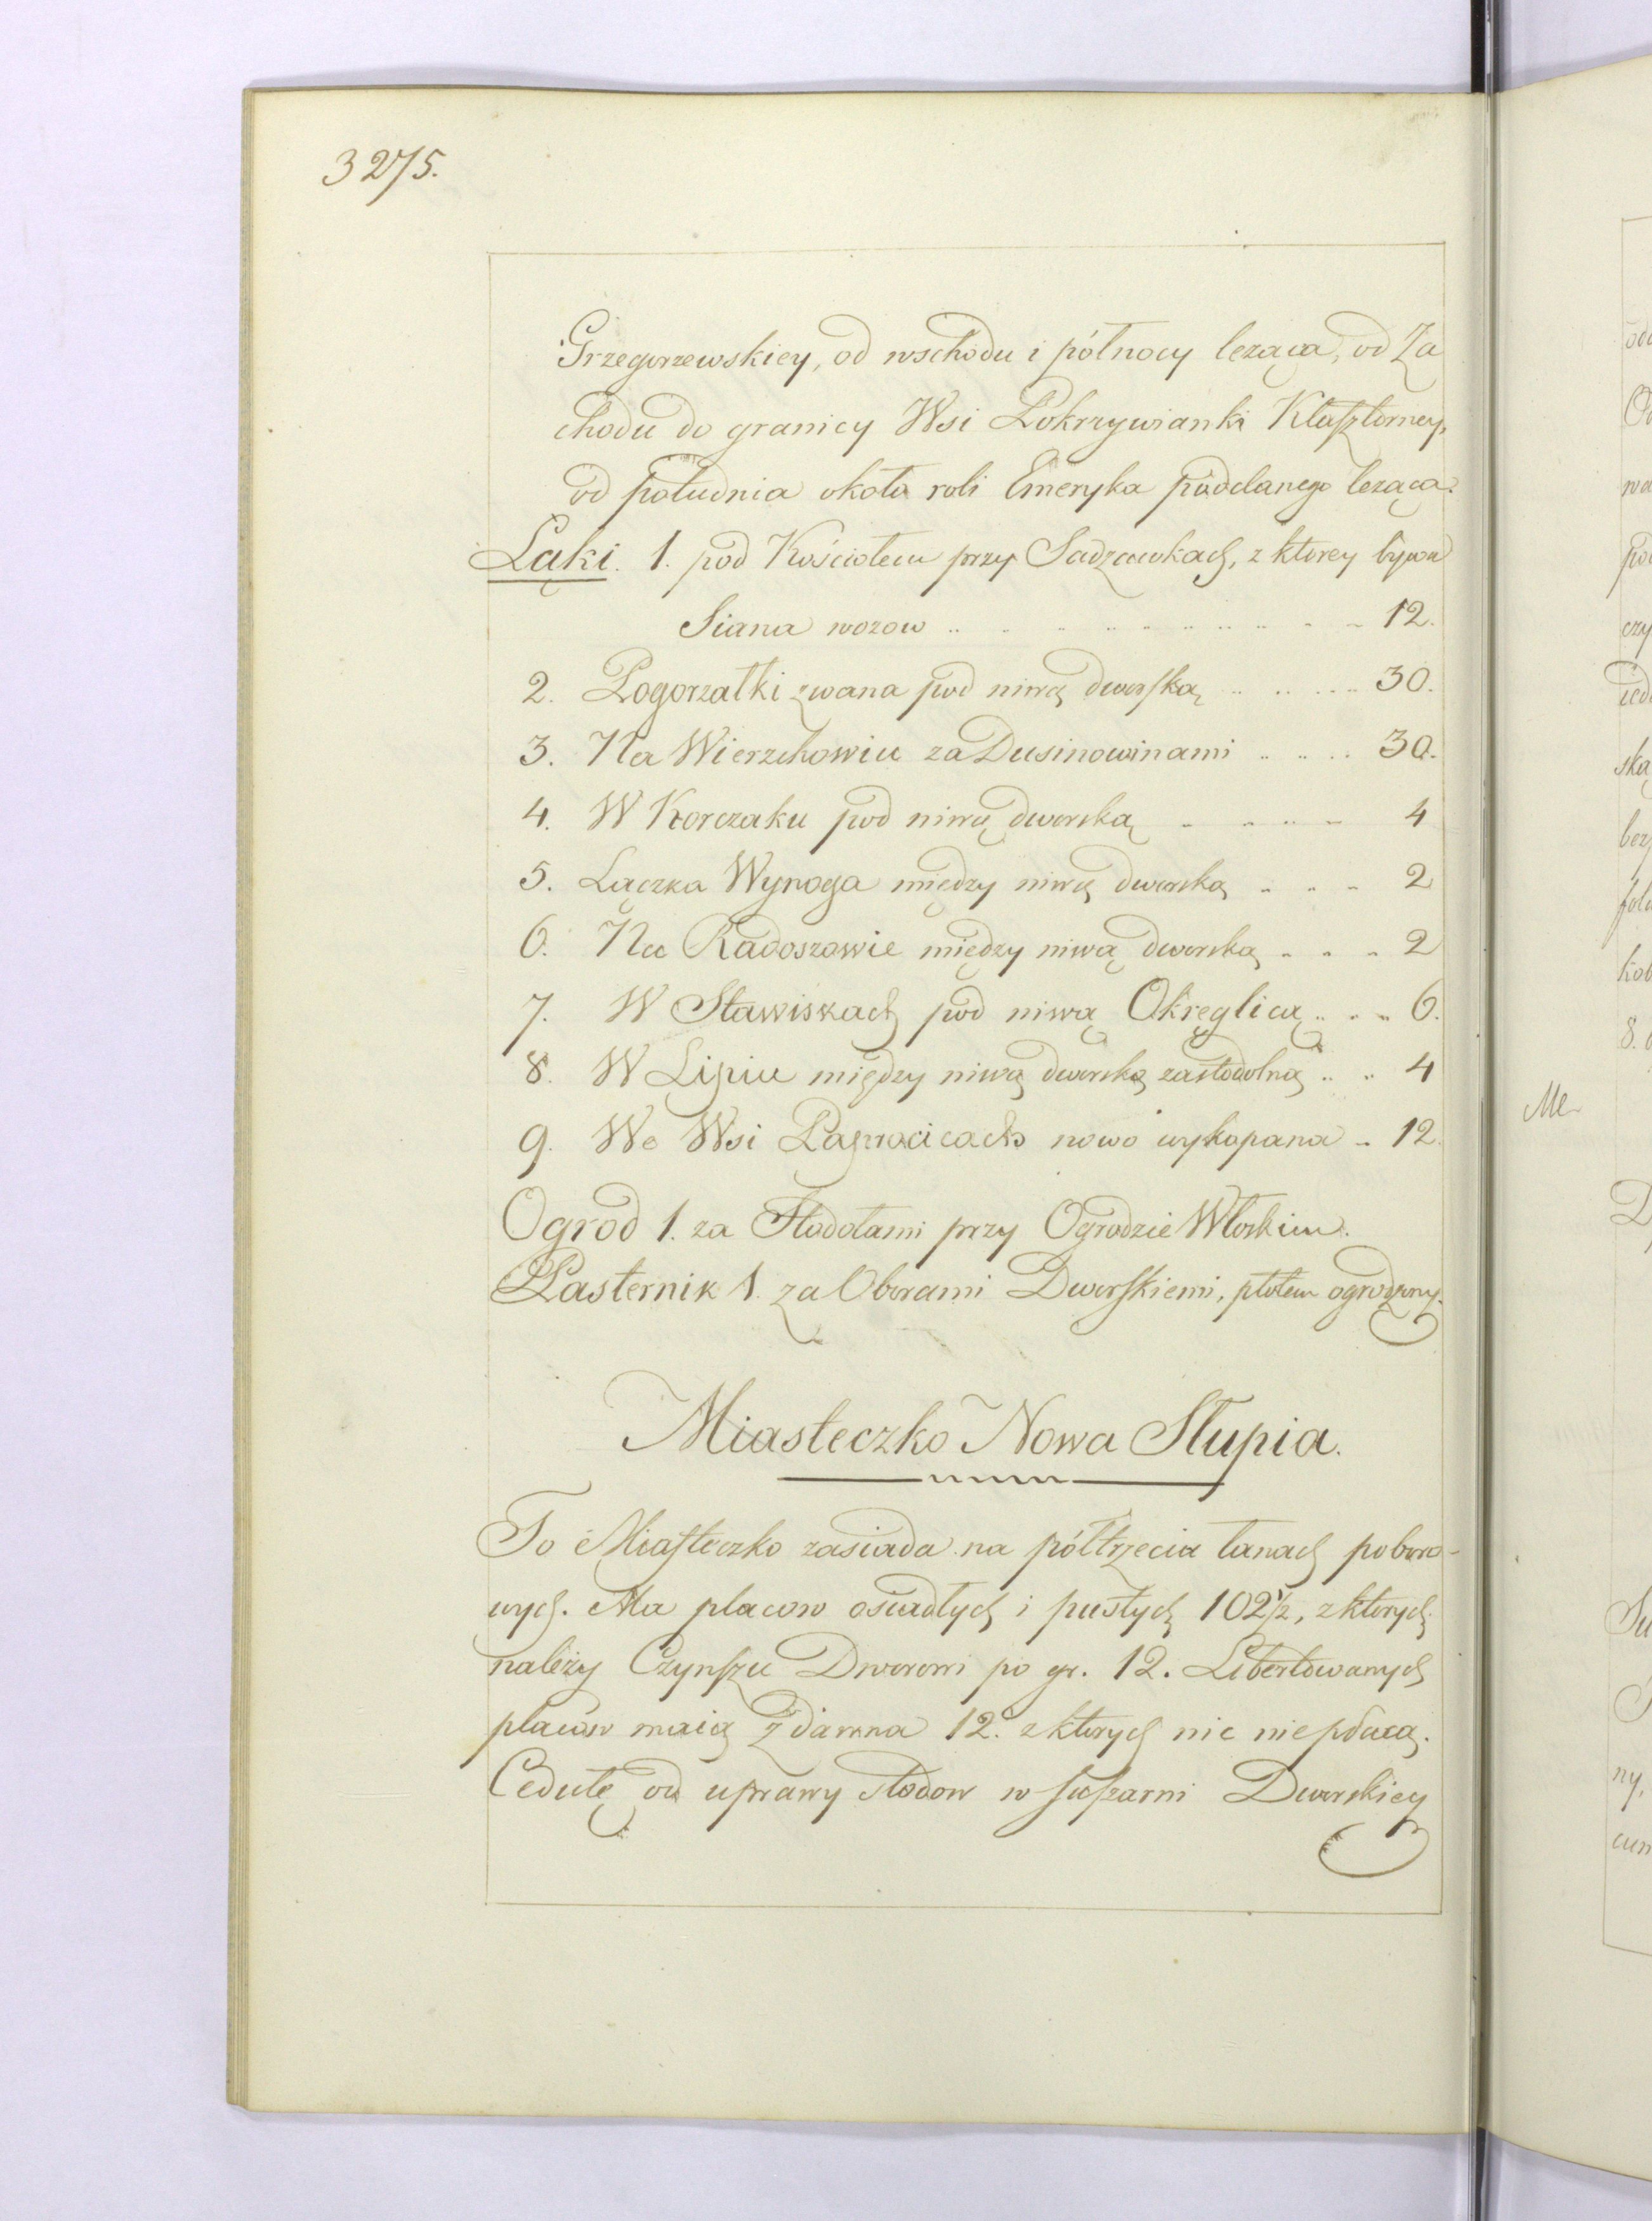 3275.
Grzegorzewskiey, od wschodu i północy leżąca, od Za
chodu do granicy Wsi Pokrzywianki Klasztorney,
od południa około roli Emeryka poddanego leżąca.
Łąki. 1. pod Kościołem przy Sadzawkach, z ktorey bywa
Siana wozow .. .. .. .. .. .. 12.
2. Pogorzałki zwana pod niwą dworską .. .. .. 30.
3. Na Wierzchowiu za Dusinowinami .. .. .. 30.
4. W Korczaku pod niwą dworską .. .. .. 4
5. Łączka Wynoga między niwą dworską .. .. .. 2
6. Na Radoszowie między niwą dworską .. .. .. 2
7. W Stawiskach pod niwą Okręglicą .. .. .. 6.
8. W Lipiu między niwą dworską zastodolną .. .. 4
9. We Wsi Paprocicach nowo wykopana .. 12.
Ogrod 1. za Stodołami przy Ogrodzie Włoskim.
Pasternik 1. za Oborami Dworskiemi, płotem ogrodzony.
Miasteczko Nowa Słupia.
To Miasteczko zasiada na półtrzecia łanach poboro-
wych. Ma placow osiadłych i pustych 102½, z ktorych
należy Czynszu Dworowi po gr. 12. Libertowanych
placow maią z dawna 12. z ktorych nic niepłacą.
Cedułę od uprawy słodow w suszarni Dworskiey